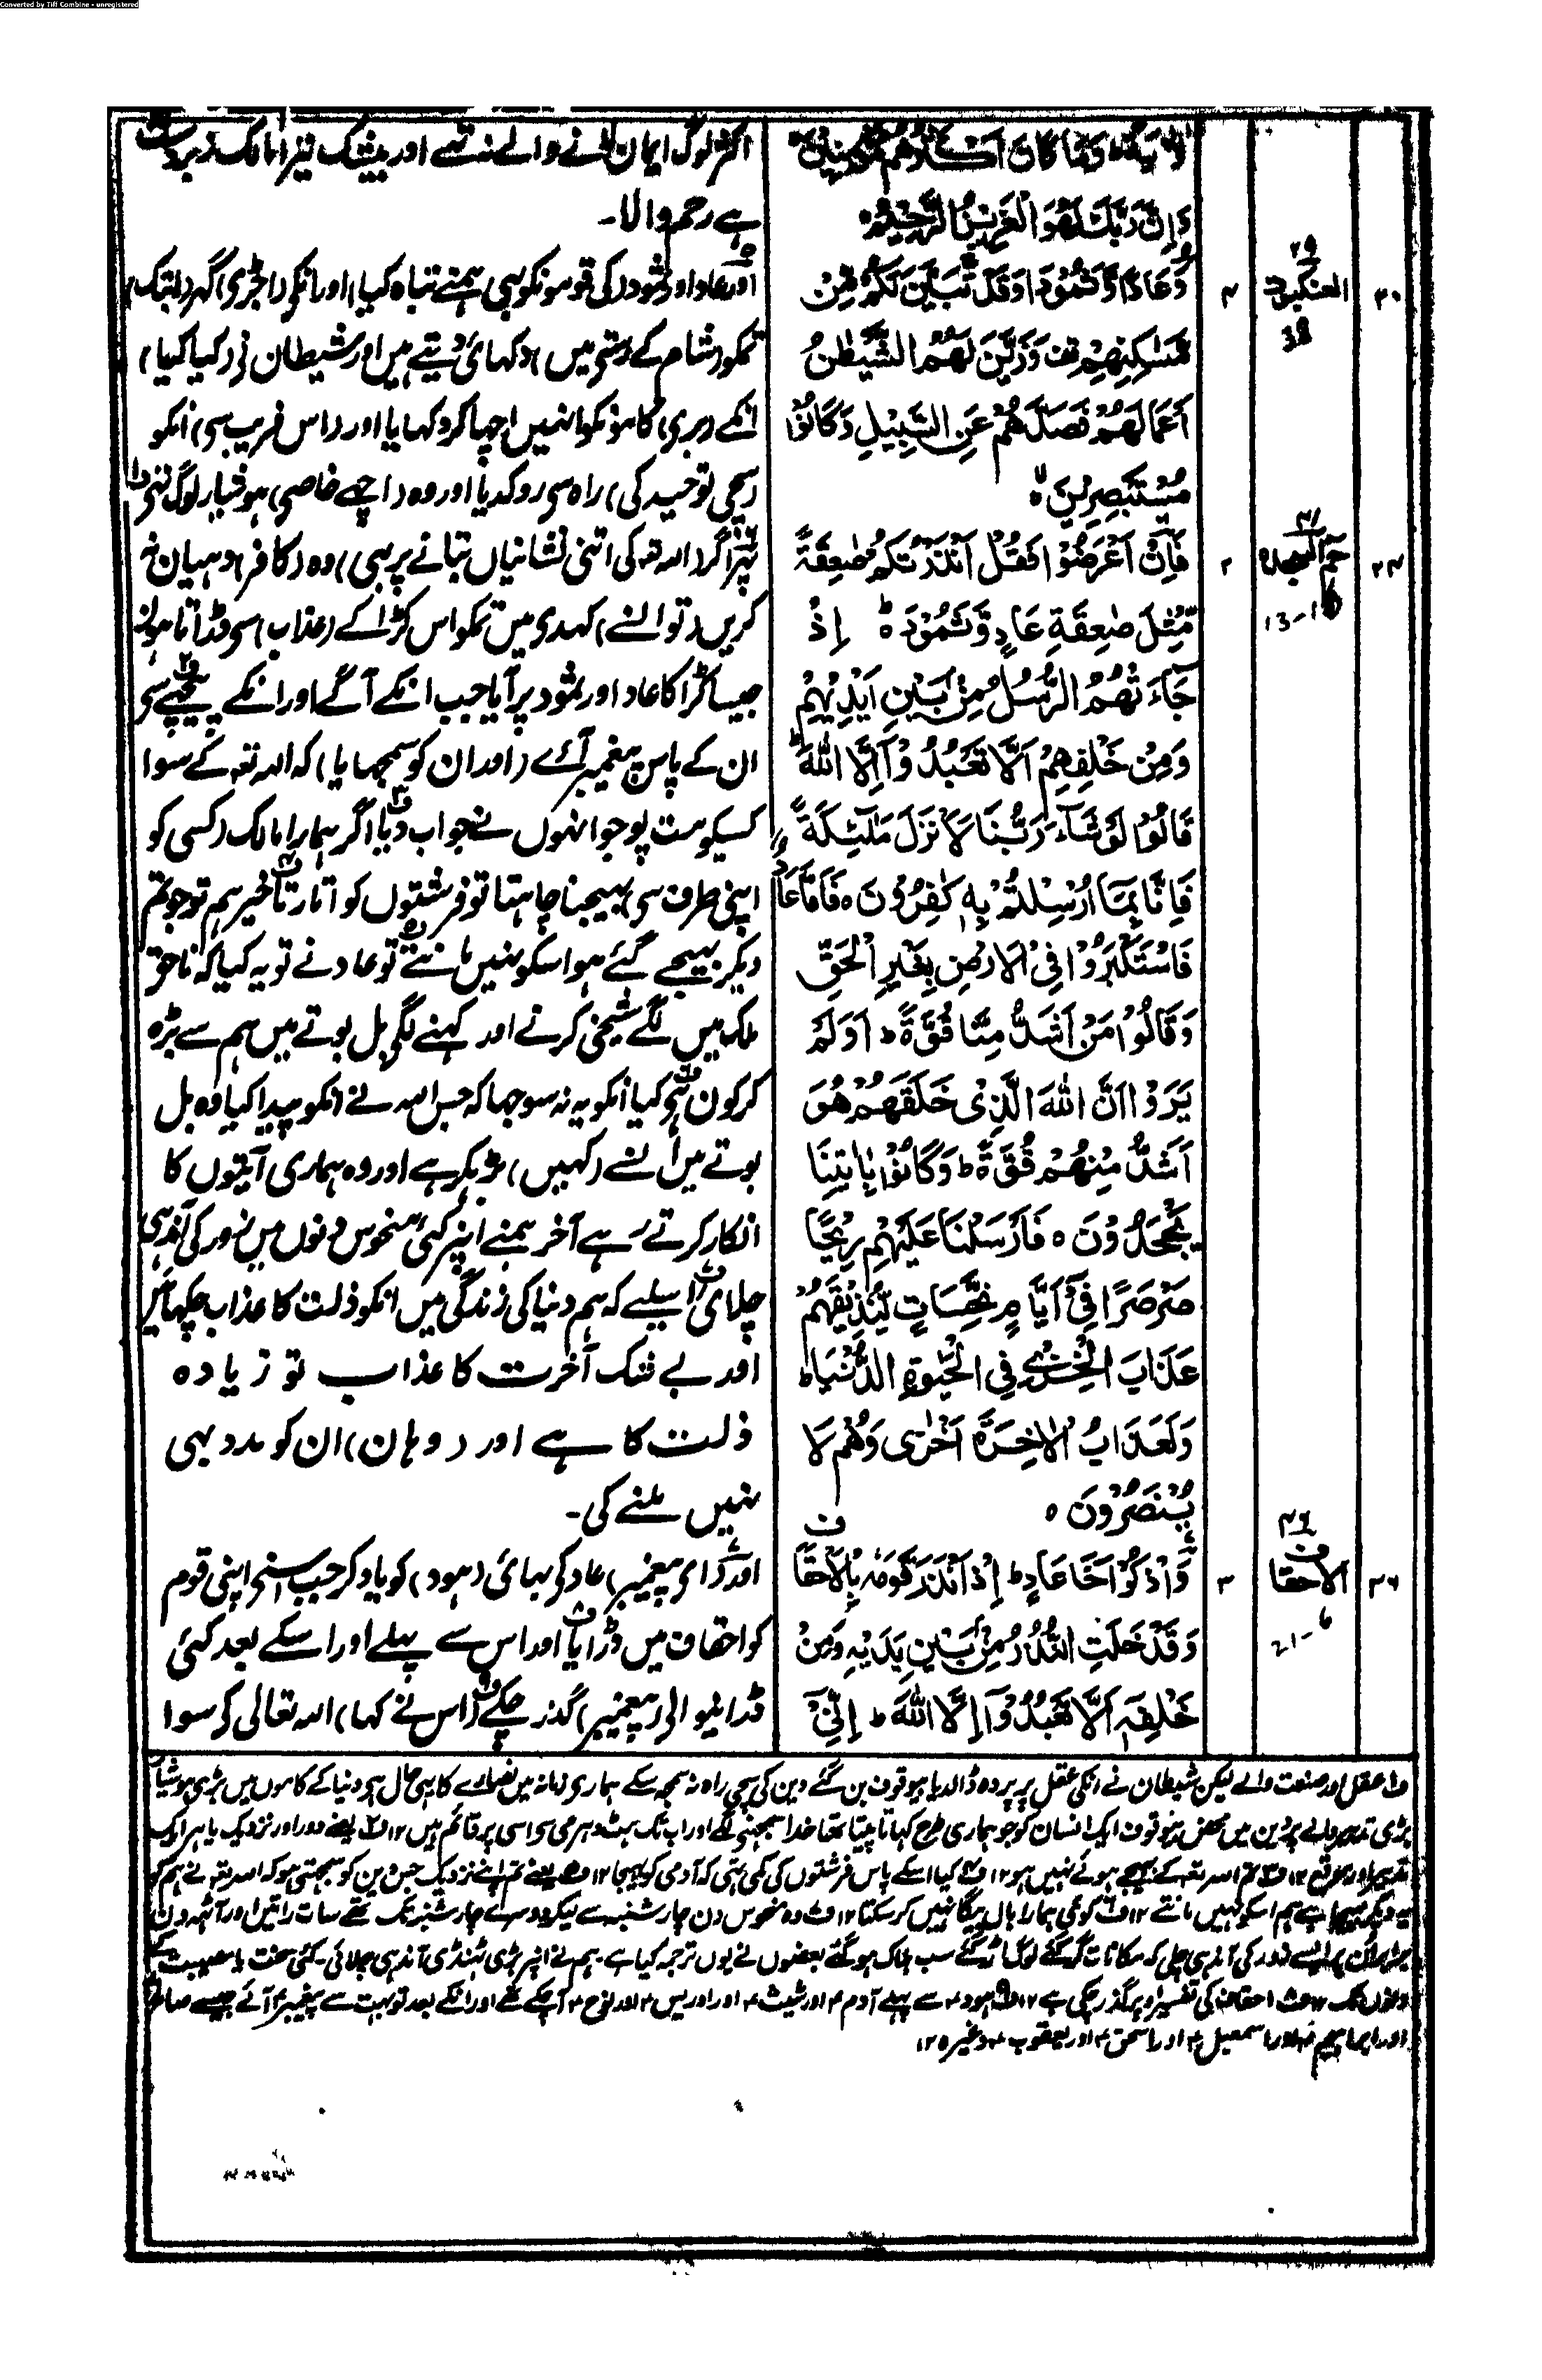 Converted by Tiff Combine - unregistered
لَاٰيَةً وَمَا كَانَ اَكْثَرُهُمْ مُّؤْمِنِيْنَ
وَاِنَّ رَبَّكَ لَهُوَ الْعَزِيْزُ الرَّحِيْمُ
اکثر لوگ ایمان لانے والے نہ تھے اور بیشک تیرا مالک زبردست
ہے رحم والا۔
۲۰
العنکبوت
۲۹
38
۴
وَعَادًا وَّثَمُوْدَا۟ وَقَدْ تَّبَيَّنَ لَكُمْ مِّنْ
مَّسٰكِنِهِمْ وَزَيَّنَ لَهُمُ الشَّيْطٰنُ
اَعْمَالَهُمْ فَصَدَّهُمْ عَنِ السَّبِيْلِ وَكَانُوْا
مُسْتَبْصِرِيْنَ
اور عاد اور ثمود کی قومونکو بہی ہمنے تباہ کیا اور انکی (اجڑی) گہر (ابتک)
تمکو (شام کے رستی میں) دکہائی دیتے ہیں اور شیطان نی (کیا کیا)
انکے (بری) کامونکو انہیں اچہا کر دکہایا اور (اس فریب سی) انکو
(سچی توحید کی) راہ سی روکدیا اور وہ (اچہے خاصی) ہوشیار لوگ تہی
۲۴
حٰم السجدۃ
۴۱
13-16
۲
فَاِنْ اَعْرَضُوْا فَقُلْ اَنْذَرْتُكُمْ صٰعِقَةً
مِّثْلَ صٰعِقَةِ عَادٍ وَّثَمُوْدَ ط اِذْ
جَآءَتْهُمُ الرُّسُلُ مِنْۢ بَيْنِ اَيْدِيْهِمْ
وَمِنْ خَلْفِهِمْ اَلَّا تَعْبُدُوْٓا اِلَّا اللّٰهَ
قَالُوْا لَوْ شَآءَ رَبُّنَا لَاَنْزَلَ مَلٰٓئِكَةً
فَاِنَّا بِمَآ اُرْسِلْتُمْ بِهٖ كٰفِرُوْنَ ہ فَاَمَّا عَادٌ
فَاسْتَكْبَرُوْا فِى الْاَرْضِ بِغَيْرِ الْحَقِّ
وَقَالُوْا مَنْ اَشَدُّ مِنَّا قُوَّةً ط اَوَلَمْ
يَرَوْا اَنَّ اللّٰهَ الَّذِىْ خَلَقَهُمْ هُوَ
اَشَدُّ مِنْهُمْ قُوَّةً ط وَكَانُوْا بِاٰيٰتِنَا
يَجْحَدُوْنَ ہ فَاَرْسَلْنَا عَلَيْهِمْ رِيْحًا
صَرْصَرًا فِىْٓ اَيَّامٍ نَّحِسَاتٍ لِّنُذِيْقَهُمْ
عَذَابَ الْخِزْىِ فِى الْحَيٰوةِ الدُّنْيَا ط
وَلَعَذَابُ الْاٰخِرَةِ اَخْزٰى وَهُمْ لَا
يُنْصَرُوْنَ ہ
پہر اگر (اللہ تعہ کی اتنی نشانیاں بتانے پر بہی) وہ (کافر) دہیان نہ
کریں (تو انسے) کہدی میں تمکو اس کڑاکے (عذاب) سی ڈراتا ہوں
جیسا کڑاکا عاد اور ثمود پر آیا جب انکے آگے اور انکے پیچہے سی
ان کے پاس پیغمبر آئے (اور ان کو سمجہایا) کہ اللہ تعہ کے سوا
کسیکو مت پوجو انہوں نے جواب دیا اگر ہمارا مالک (کسی کو
اپنی طرف سی) بہیجنا چاہتا تو فرشتوں کو اتارتا خیر ہم تو جو تم
دیکر بہیجے گئے ہو اسکو نہیں مانتے تو عاد نے تو یہ کیا کہ ناحق
ملک میں لگے شیخی کرنے اور کہنے لگے بل بوتے میں ہم سے بڑہ
کر کون ہے کیا انکو یہ نہ سوجہا کہ جس اللہ نے انکو پیدا کیا وہ بل
بوتے میں انسے (کہیں) بڑہکر ہے اور وہ ہماری آیتوں کا
انکار کرتے رہے آخر ہمنے انپر کئی منحوس دنوں میں زور کی آندہی
چلائی اسلیے کہ ہم دنیا کی زندگی میں انکو ذلت کا عذاب چکہائیں
اور بے شک آخرت کا عذاب تو زیادہ
ذلت کا ہے اور (وہان) ان کو مدد بہی
نہیں ملنے کی۔
۲۶
الاحقاف
۴۶
21-6
۳
وَاذْكُرْ اَخَا عَادٍ ط اِذْ اَنْذَرَ قَوْمَهٗ بِالْاَحْقَافِ
وَقَدْ خَلَتِ النُّذُرُ مِنْۢ بَيْنِ يَدَيْهِ وَمِنْ
خَلْفِهٖٓ اَلَّا تَعْبُدُوْٓا اِلَّا اللّٰهَ ط اِنِّىْٓ
اور (ای پیغمبر) عاد کی بہائی (ہود) کو یاد کر جب اسنے اپنی قوم
کو احقاف میں ڈرایا اور اس سے پہلے اور اسکے بعد کئی
ڈرانیوالی (پیغمبر) گذر چکے (اس نے کہا) اللہ تعالی کی سوا
و۱ عقل اور صنعت والے لیکن شیطان نے انکی عقل پر پردہ ڈالدیا بیوقوف بن گئے دین کی سچی راہ نہ سمجہ سکے ہماری زمانہ میں نصاری کا یہی حال ہی دنیا کے کاموں میں بڑی ہوشیار
بڑی تدبیر والے پر دین میں محض بیوقوف ایک انسان کو جو ہماری طرح کہاتا پیتا تہا خدا سمجہنے لگے اور اب تک ہٹ دہرمی سی اسی پر قائم ہیں ۱۲ و۲ یعنے دور اور نزدیک یا ہر ایک
تدبیر اور موقع ۱۲ و۳ تم اللہ تعہ کے بہیجے ہوئے نہیں ہو ۱۲ و۴ کیا اسکے پاس فرشتوں کی کمی تہی کہ آدمی کو بہیجا ۱۲ و۵ یعنے تم اپنے نزدیک جس دین کو سمجہتی ہو کہ اللہ تعہ نے ہم کو
یہ دیکر بہیجا ہے ہم اسکو نہیں مانتے ۱۲ و۶ کوئی ہمارا بال بیکا نہیں کر سکتا ۱۲ و۷ وہ منحوس دن چار شنبہ سے لیکر دوسرے چار شنبہ تک تہے سات راتیں اور آٹہ دن
برابر ان پر ایسے زور کی آندہی چلی کہ مکانات گر گئے لوگ اڑ گئے سب ہلاک ہو گئے بعضوں نے یوں ترجمہ کیا ہے۔ ہم نے انپر بڑی ٹہنڈی آندہی چلائی۔ کئی سخت یا مصیبت کے
دنوں تک ۱۲ و۸ احقاف کی تفسیر اوپر گذر چکی ہے ۱۲ و۹ ہود ۴ سے پہلے آدم ۴ اور شیث ۴ اور ادریس ۴ اور نوح ۴ آچکے تہے اور انکے بعد تو بہت سے پیغمبر آئے جیسے صالح
اور ابراہیم ۴ اور اسمعیل ۴ اور اسحق ۴ اور یعقوب ۴ وغیرہ ۱۲